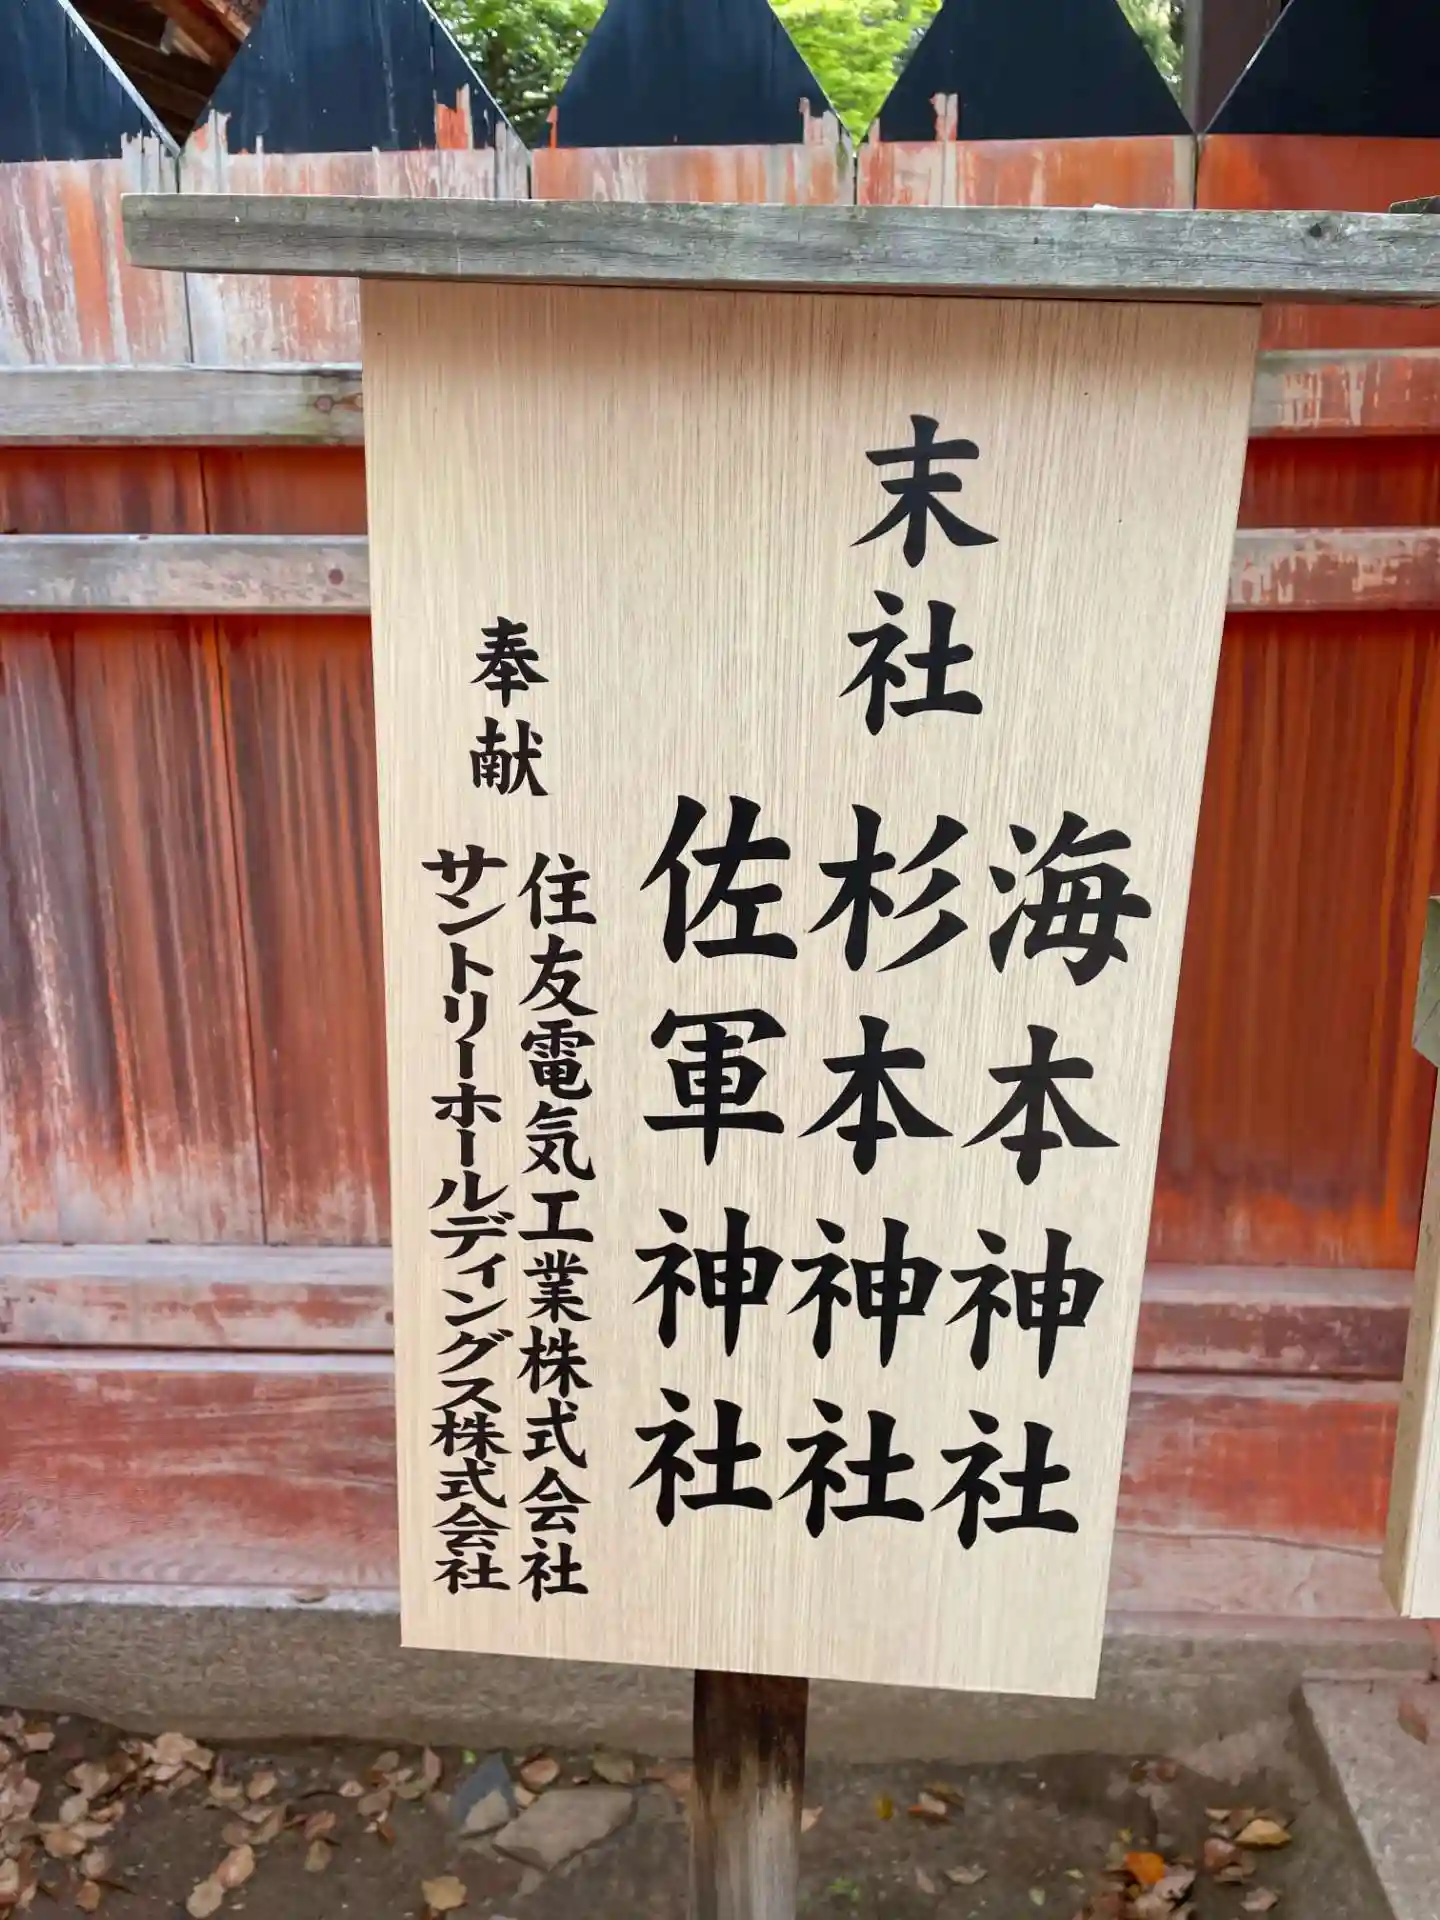 末社
海本神社
杉本神社
佐軍神社
奉献
住友電気工業株式会社
サントリーホールディングス株式会社